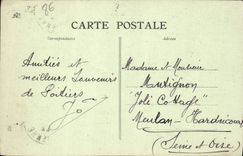 CARTE POSTALE
Correspondance
Amitiés et
meilleurs Souvenirs
de Poitiers
Madame et Monsieur
Martignon
"Joli Cottage"
Meulan-Hardricourt
(Seine et Oise)